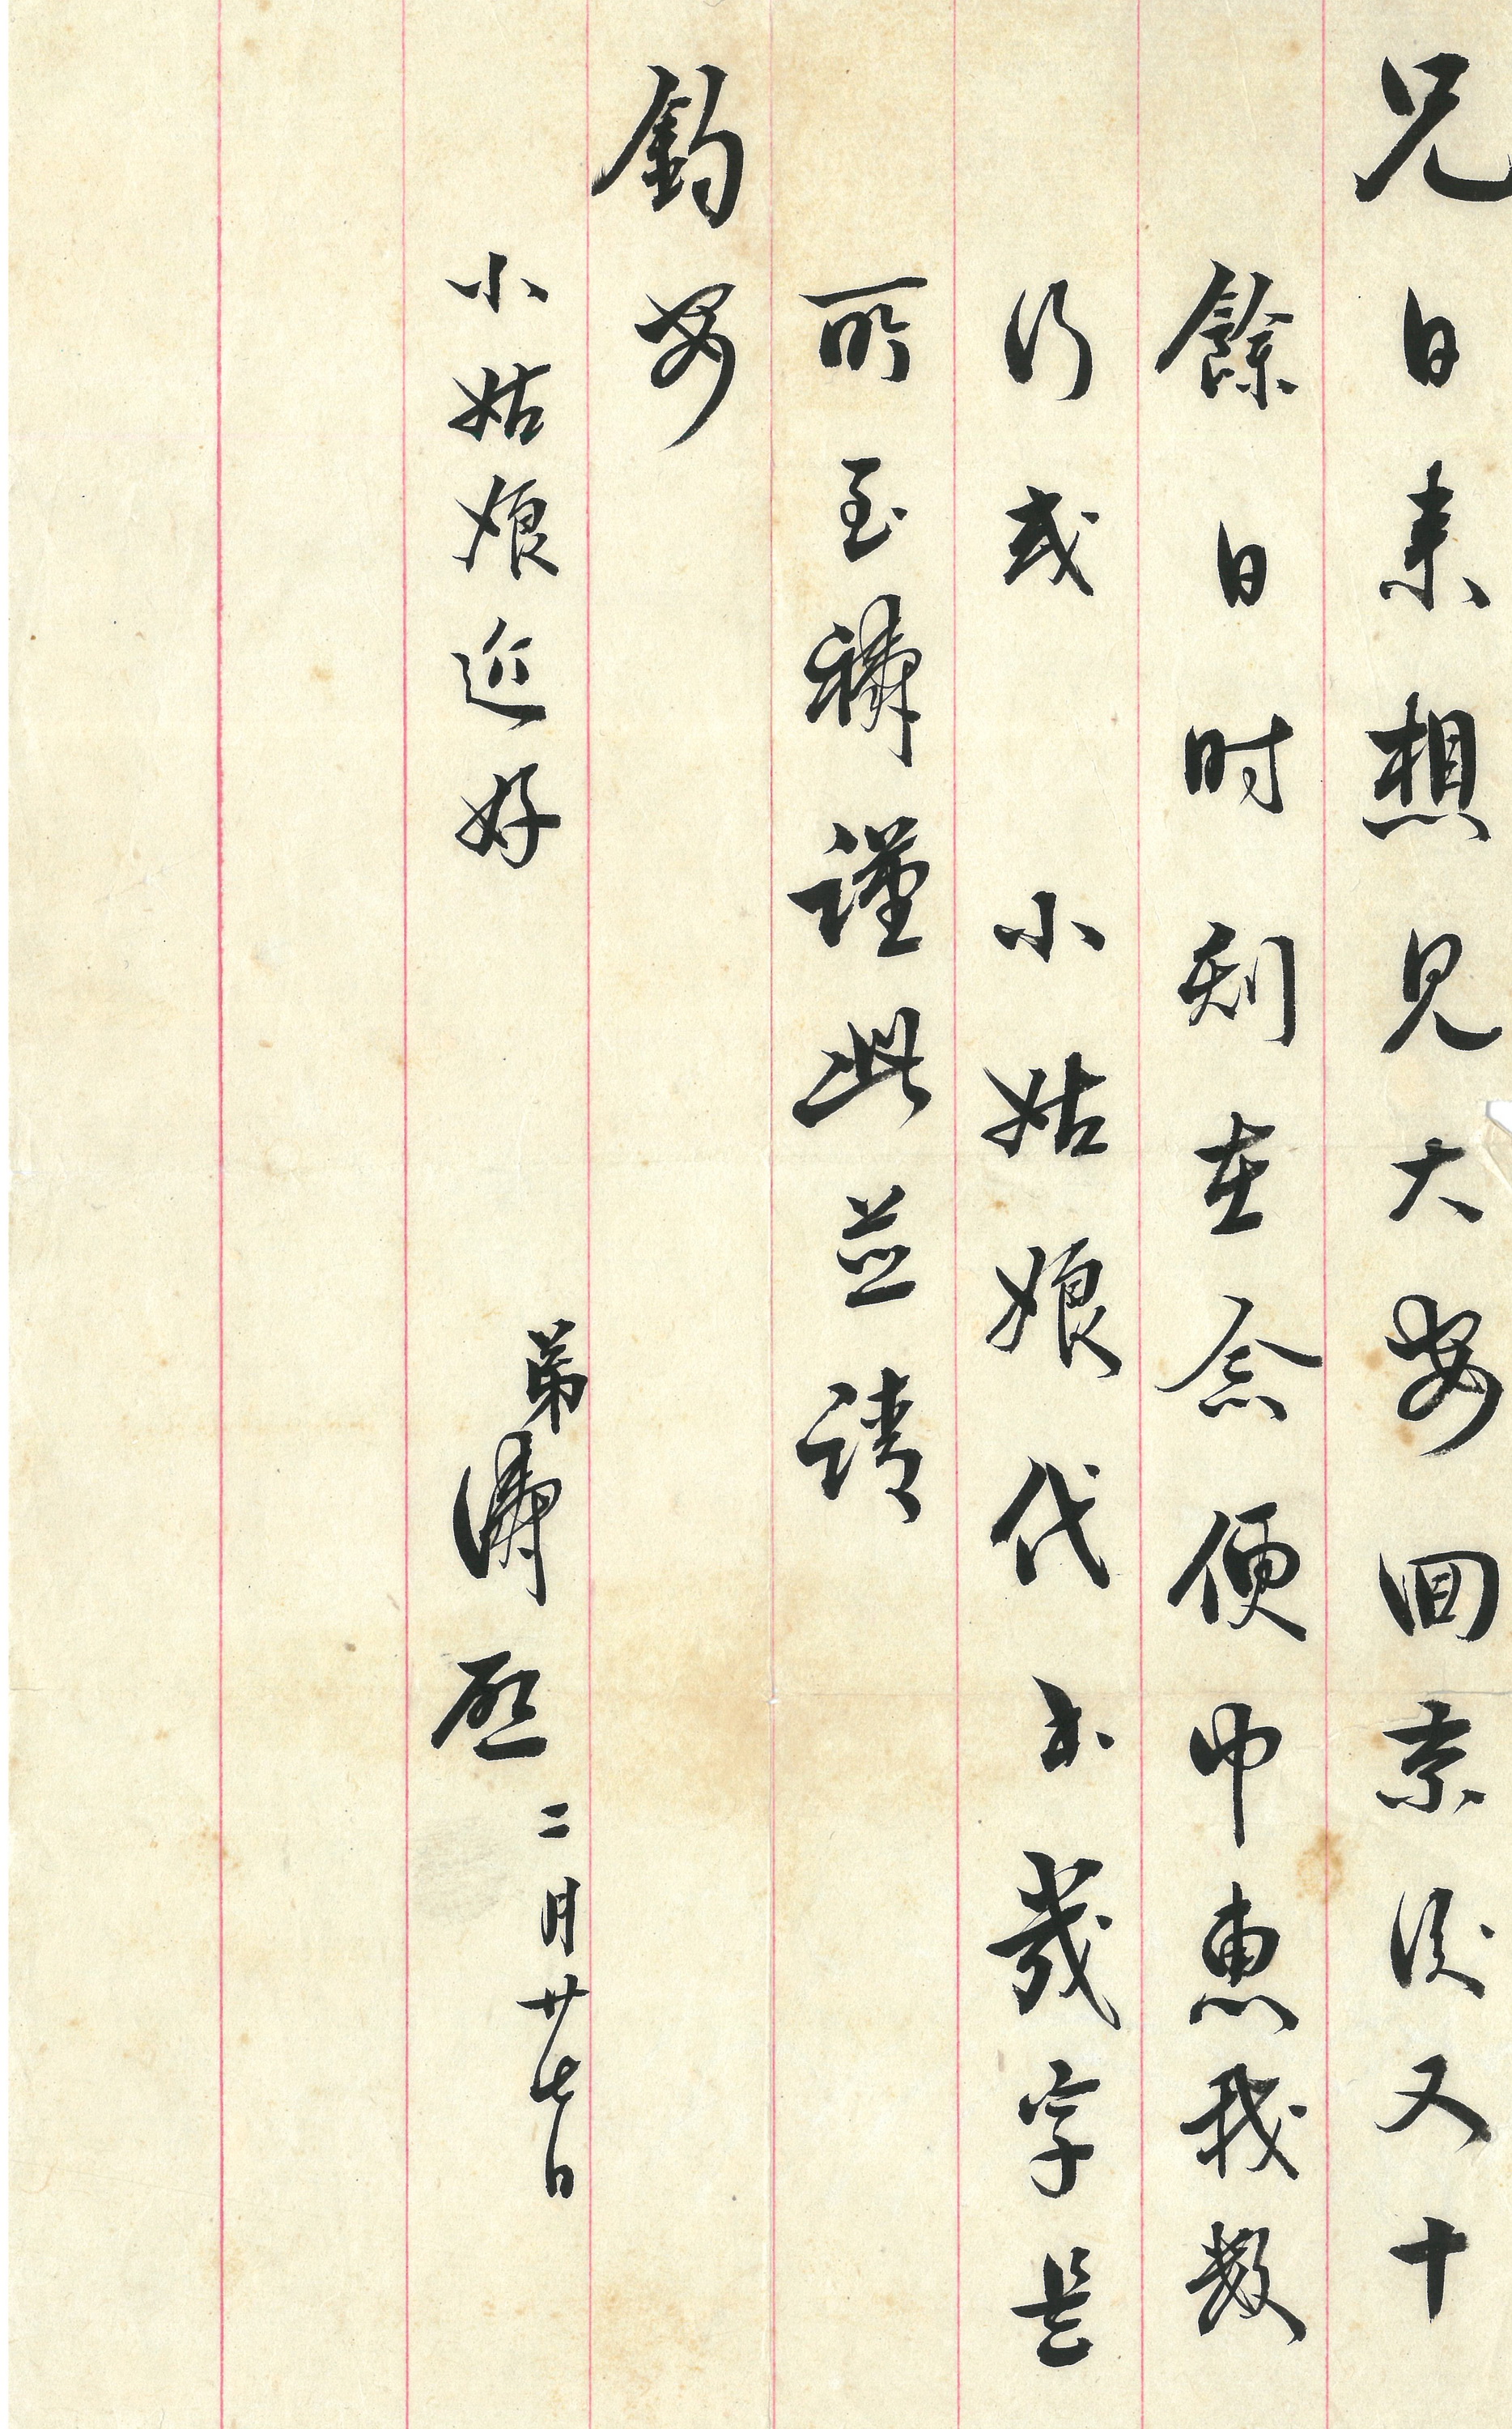 兄日来想見大安囬京後又十
餘日时刻在念便中惠我数
行或 小姑娘代书幾字是
所至禱謹此並請
鈞安
小姑娘近好
弟濤啟 二月廿七日